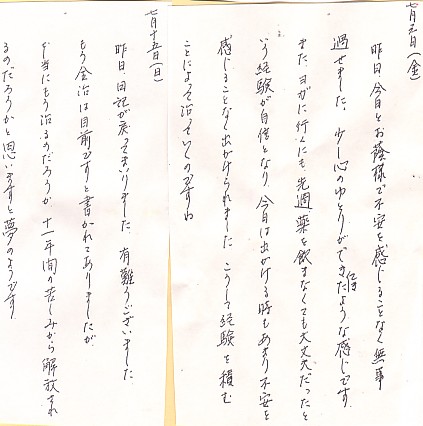 七月十三日(金)
昨日、今日とお蔭様で不安を感じることなく無事
過せました。少し心のゆとりができたような感じです。
また、ヨガに行くにも、先週薬を飲まなくても大丈夫だったと
いう経験が自信となり、今日は出かける時もあまり不安を
感じることなく出かけられました。こうして経験を積む
ことによって治っていくのですね
七月十五日(日)
昨日、日記が戻ってまいりました。有難うございました
もう全治は目前ですと書かれてありましたが
本当にもう治るのだろうか 十一年間の苦しみから解放され
るのだろうかと思いますと夢のようです。